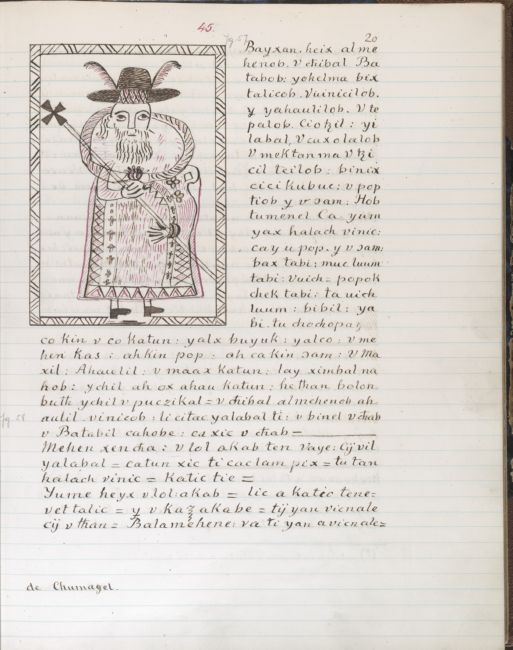 45.
20
Bayxan. heix al me
henob. V chibal Ba
tabob: yohelma bix
talicob. Vuinicilob.
y yahaulilob. V te
palob. Ciotzil: yi
labal, V cuxolalob
V mektanma V tzi
cil teilob: binix
cicikubuc: v pop
tiob y v ɔam: Hob
tumenel Ca yum
yax halach vinic:
ca y u pop. y v ɔam:
pax tabi: muc luum
tabi: Vuich= popok
chek tabi: ta uich
luum: bibil: ya
bi. tu chochopay
co kin v co katun: yalx buyuk: yalco: v me
hen kas: ahkin pop: ah ca kin ɔam: V Ma
xil: Ahaulil: v maax katun: lay ximbal na
hob: ychil ah ox ahau katun: he than bolon
buth ychil v puczikal = v chibal almehenob ah
aulil. vinicob: li citac yalabal ti: v binel v chab
v Batabil cahobe: ca xic v chab =
Mehen xen cha: v lol akab ten Vaye: Cij vil
yalabal = catun xic ti cac lam pix = tu tan
halach vinic = katic tie =
Yume heyx v lol: akab = lic a katic tene=
vet talic = y v kaz akabe = tij yan vicnale
cij v than = Balamehene: va ti yan a vicnale=
de Chumagel.